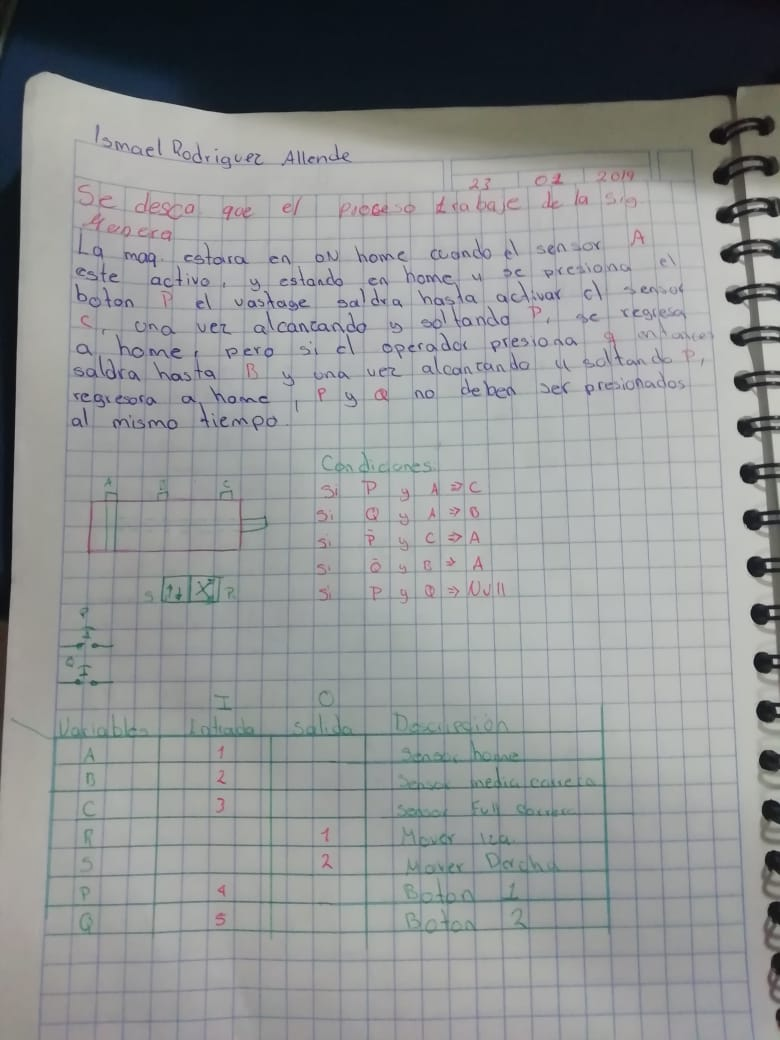 Ismael Rodriguez Allende
23 01 2019
Se desea que el proceso trabaje de la sig
Manera
La maq. estara en ON home cuando el sensor A
este activo, y estando en home y se presiona el
boton P el vastago saldra hasta activar el sensor
C, una vez alcanzando y soltando P, se regresa
a home, pero si el operador presiona q entonces
saldra hasta B y una vez alcanzando y soltando P,
regresora a home, P y Q no deben ser presionados
al mismo tiempo.
Condiciones
Si P y A => C
Si Q y A => B
Si P̄ y C => A
Si Q̄ y B => A
Si P y Q => Null
A B C
S R
P
Q
I O
Variables Entrada Salida Descripción
A 1 Sensor home
B 2 Sensor media carrera
C 3 Sensor Full carrera
R 1 Mover Izq.
S 2 Mover Dercha
P 4 Boton 1
Q 5 Boton 2